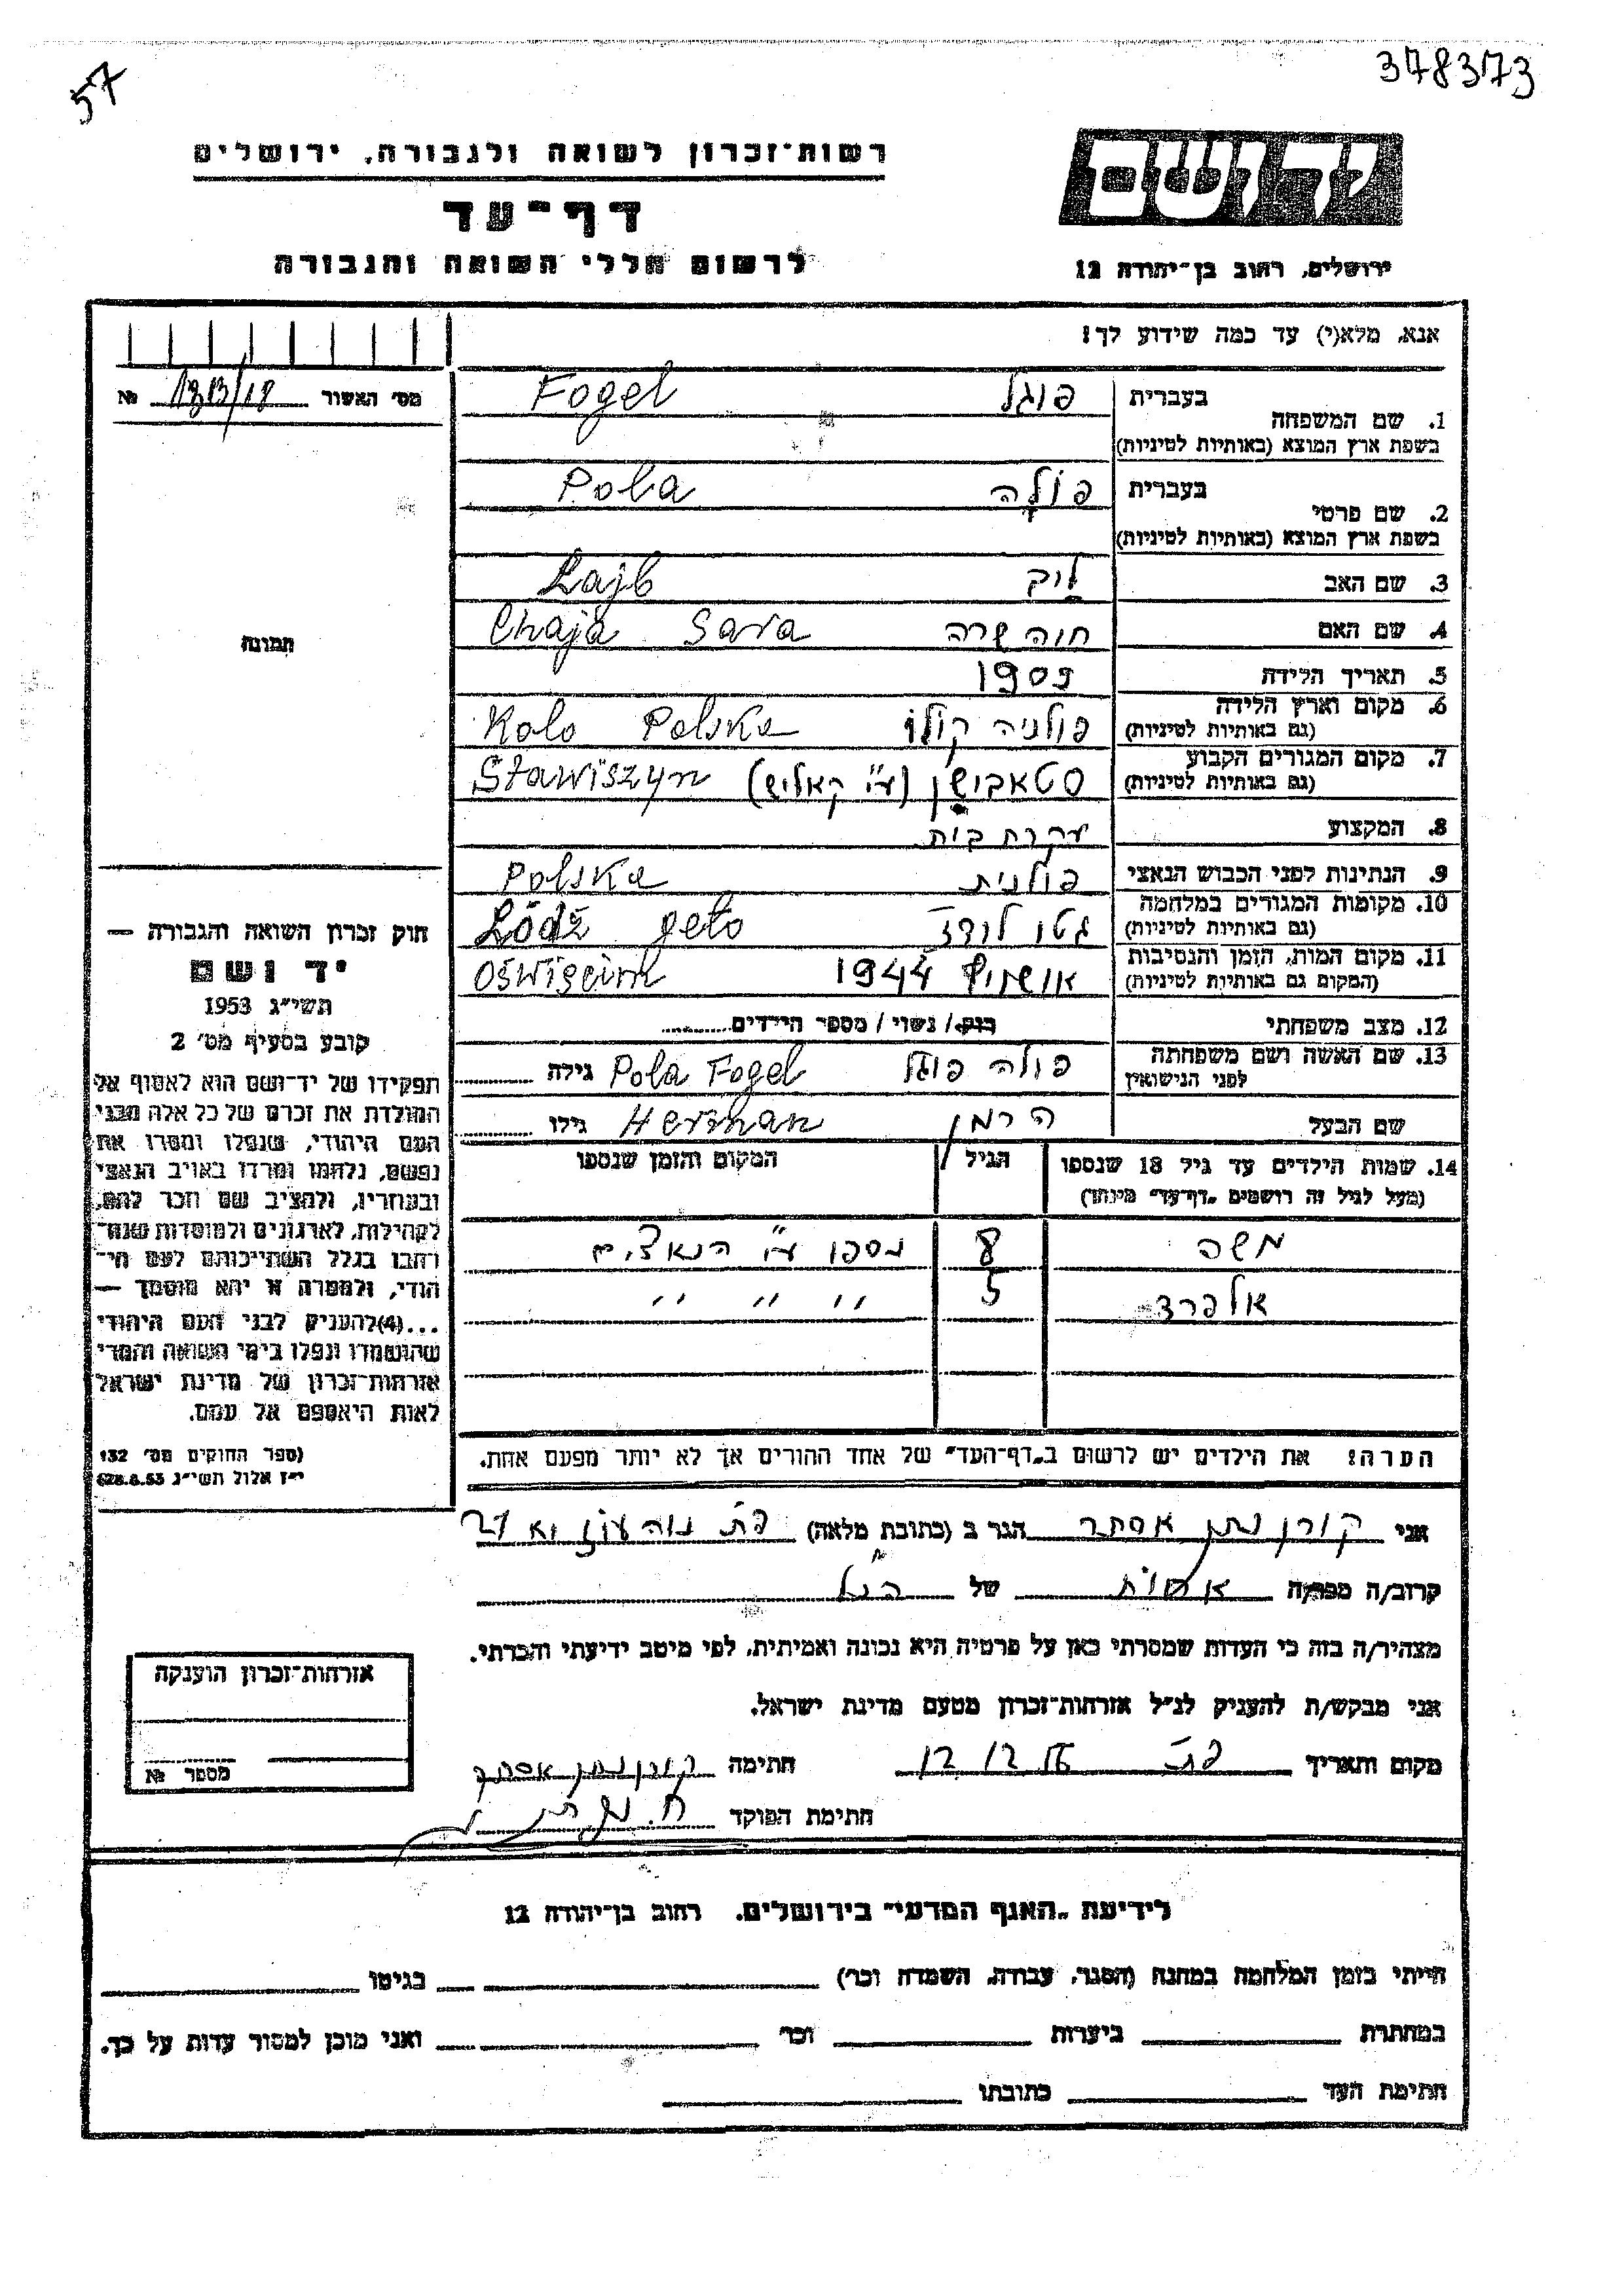 57
378373
רשות־זכרון לשואה ולגבורה, ירושלים
דף־עד
לרשום חללי השואה והגבורה
יד ושם
ירושלים, רחוב בן־יהודה 12
אנא, מלא(י) עד כמה שידוע לך!
מס׳ האשור №
1. שם המשפחה בעברית פוגל Fogel
בשפת ארץ המוצא (באותיות לטיניות)
2. שם פרטי בעברית פולה Pola
בשפת ארץ המוצא (באותיות לטיניות)
3. שם האב לייב Lajb
4. שם האם חיה שרה Chaja Sara
5. תאריך הלידה 1909
6. מקום וארץ הלידה פולניה קולו Kolo Polska
(גם באותיות לטיניות)
7. מקום המגורים הקבוע סטאבישין (ע״י קאליש) Stawiszyn
(גם באותיות לטיניות)
8. המקצוע עקרת בית
9. הנתינות לפני הכבוש הנאצי פולנית Polska
10. מקומות המגורים במלחמה גטו לודז׳ Łódź geto
(גם באותיות לטיניות)
11. מקום המות, הזמן והנסיבות אושויץ 1944 Oświęcim
(המקום גם באותיות לטיניות)
12. מצב משפחתי רווק / נשוי / מספר הילדים
13. שם האשה ושם משפחתה פולה פוגל Pola Fogel גילה
לפני הנישואין
שם הבעל הרמן Herman גילו
14. שמות הילדים עד גיל 18 שנספו הגיל המקום והזמן שנספו
(מעל לגיל זה רושמים „דף־עד״ מיוחד)
משה 8 נספו ע״י הנאצים
אלפרד 5 ״ ״ ״
הערה: את הילדים יש לרשום ב„דף־העד״ של אחד ההורים אך לא יותר מפעם אחת.
תמונה
חוק זכרון השואה והגבורה —
יד ושם
תשי״ג 1953
קובע בסעיף מס׳ 2
תפקידו של יד־ושם הוא לאסוף אל
המולדת את זכרם של כל אלה מבני
העם היהודי, שנפלו ומסרו את
נפשם, נלחמו ומרדו באויב הנאצי
ובעוזריו, ולהציב שם וזכר להם,
לקהילות, לארגונים ולמוסדות שנח־
רבו בגלל השתייכותם לעם הי־
הודי, ולמטרה זו יהא מוסמך —
...(4) להעניק לבני העם היהודי
שהושמדו ונפלו בימי השואה והמרי
אזרחות־זכרון של מדינת ישראל
לאות היאספם אל עמם.
(ספר החוקים מס׳ 132
י״ז אלול תשי״ג 28.8.53)
אני קורן נתן אסתר הגר ב (כתובת מלאה) פ״ת נוה עוז
קרוב/ה מפו/ה אחות של הנ״ל
מצהיר/ה בזה כי העדות שמסרתי כאן על פרטיה היא נכונה ואמיתית, לפי מיטב ידיעתי והכרתי.
אני מבקש/ת להעניק לנ״ל אזרחות־זכרון מטעם מדינת ישראל.
מקום ותאריך פ״ת 12 12 חתימה קורן נתן אסתר
חתימת הפוקד
אזרחות־זכרון הוענקה
מספר №
לידיעת „האגף המדעי״ בירושלים, רחוב בן־יהודה 12
הייתי בזמן המלחמה במחנה (הסגר, עבודה, השמדה וכו׳) בגיטו
במחתרת ביערות וכו׳ ואני מוכן למסור עדות על כך.
חתימת העד כתובתו